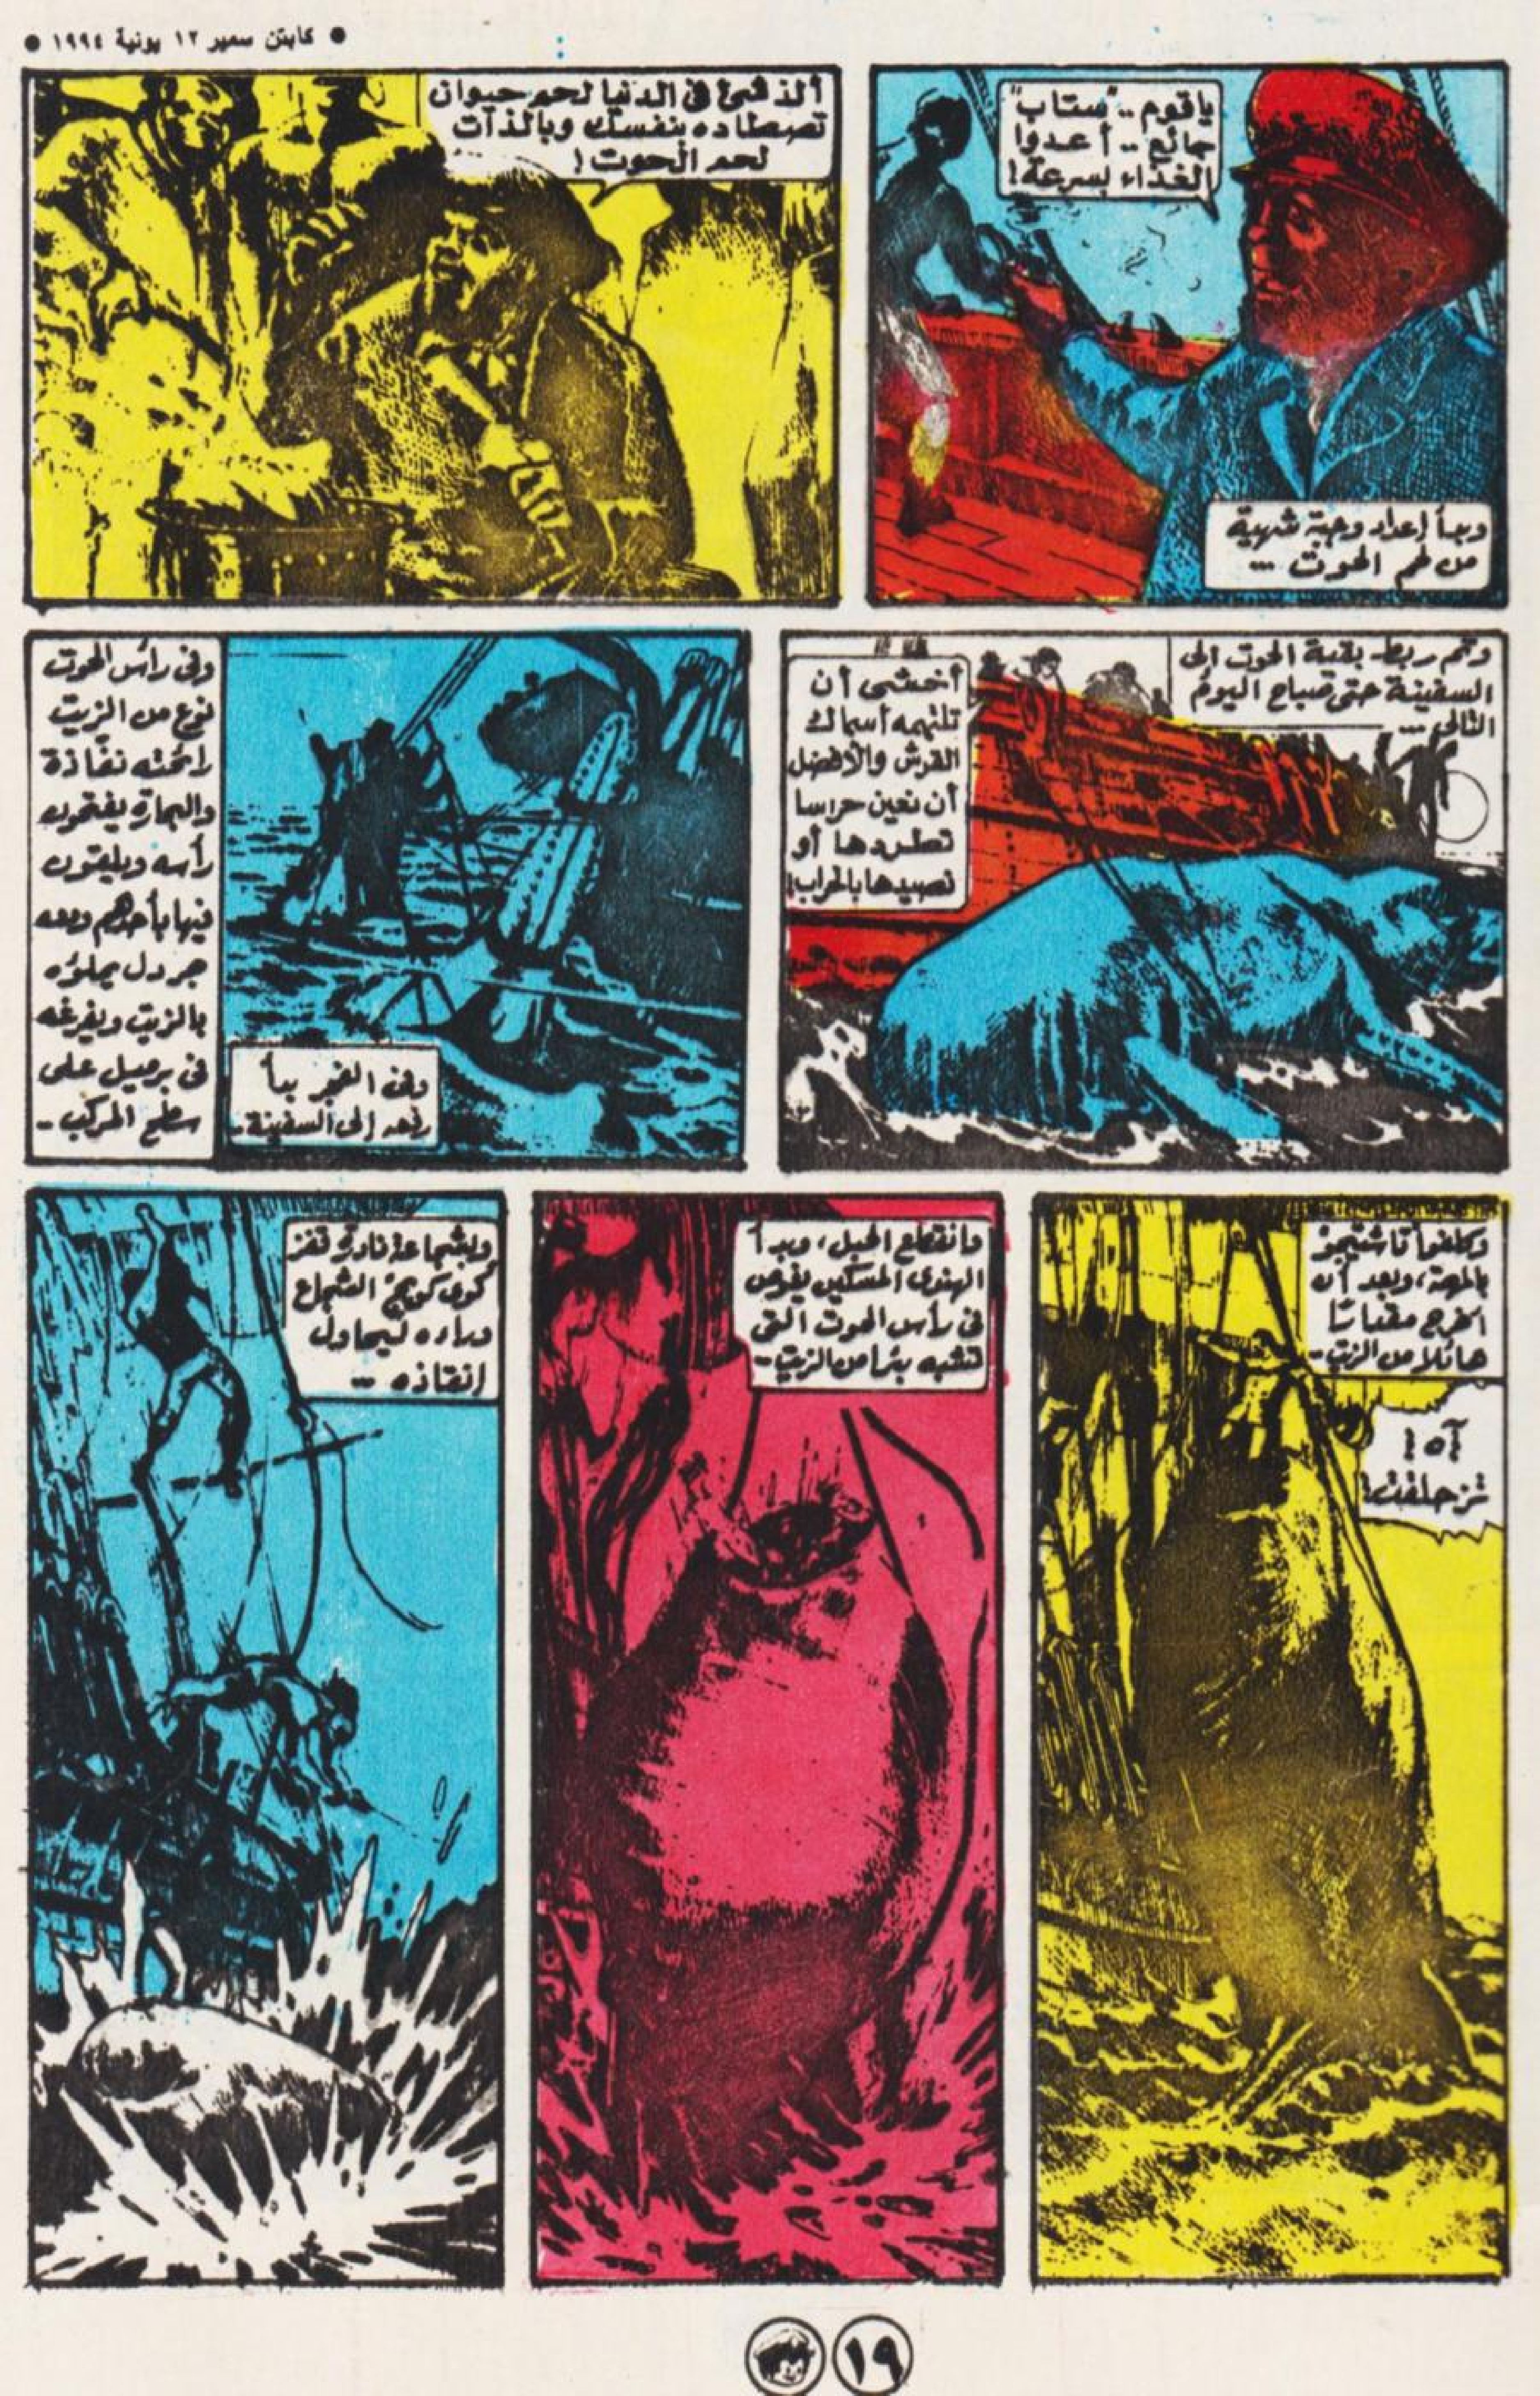 ● كابتن سمير ١٢ يونية ١٩٩٤ ●
ياقوم .. "ستاب"
جائع .. أعدوا
الغذاء بسرعة!
وبدأ إعداد وجبة شهية
من لحم الحوت ...
ألذ شئ فى الدنيا لحم حيوان
تصطاده بنفسك وبالذات
لحم الحوت!
وتم ربط بقية الحوت إلى
السفينة حتى صباح اليوم
التالى ...
أخشى أن
تلتهمه أسماك
القرش والأفضل
أن نعين حراسا
تطردها أو
تصيدها بالحراب!
وفى الفجر بدأ
رفعه إلى السفينة ..
وفى رأس الحوت
نوع من الزيت
رائحته نفاذة
والبحارة يفتحون
رأسه ويلقون
فيها بأحدهم ومعه
جردل يملؤه
بالزيت ويفرغه
فى برميل على
سطح المركب ..
وكلفوا تاشتيجو
بالمهمة، وبعد أن
أخرج مقدارًا
هائلا من الزيت ..
آه!
تزحلقت!
وانقطع الحبل، وبدأ
الهندى المسكين يغوص
فى رأس الحوت التى
تشبه بئرا من الزيت ..
وبشجاعة نادرة قفز
كوى كويج الشجاع
وراءه ليحاول
إنقاذه ...
١٩